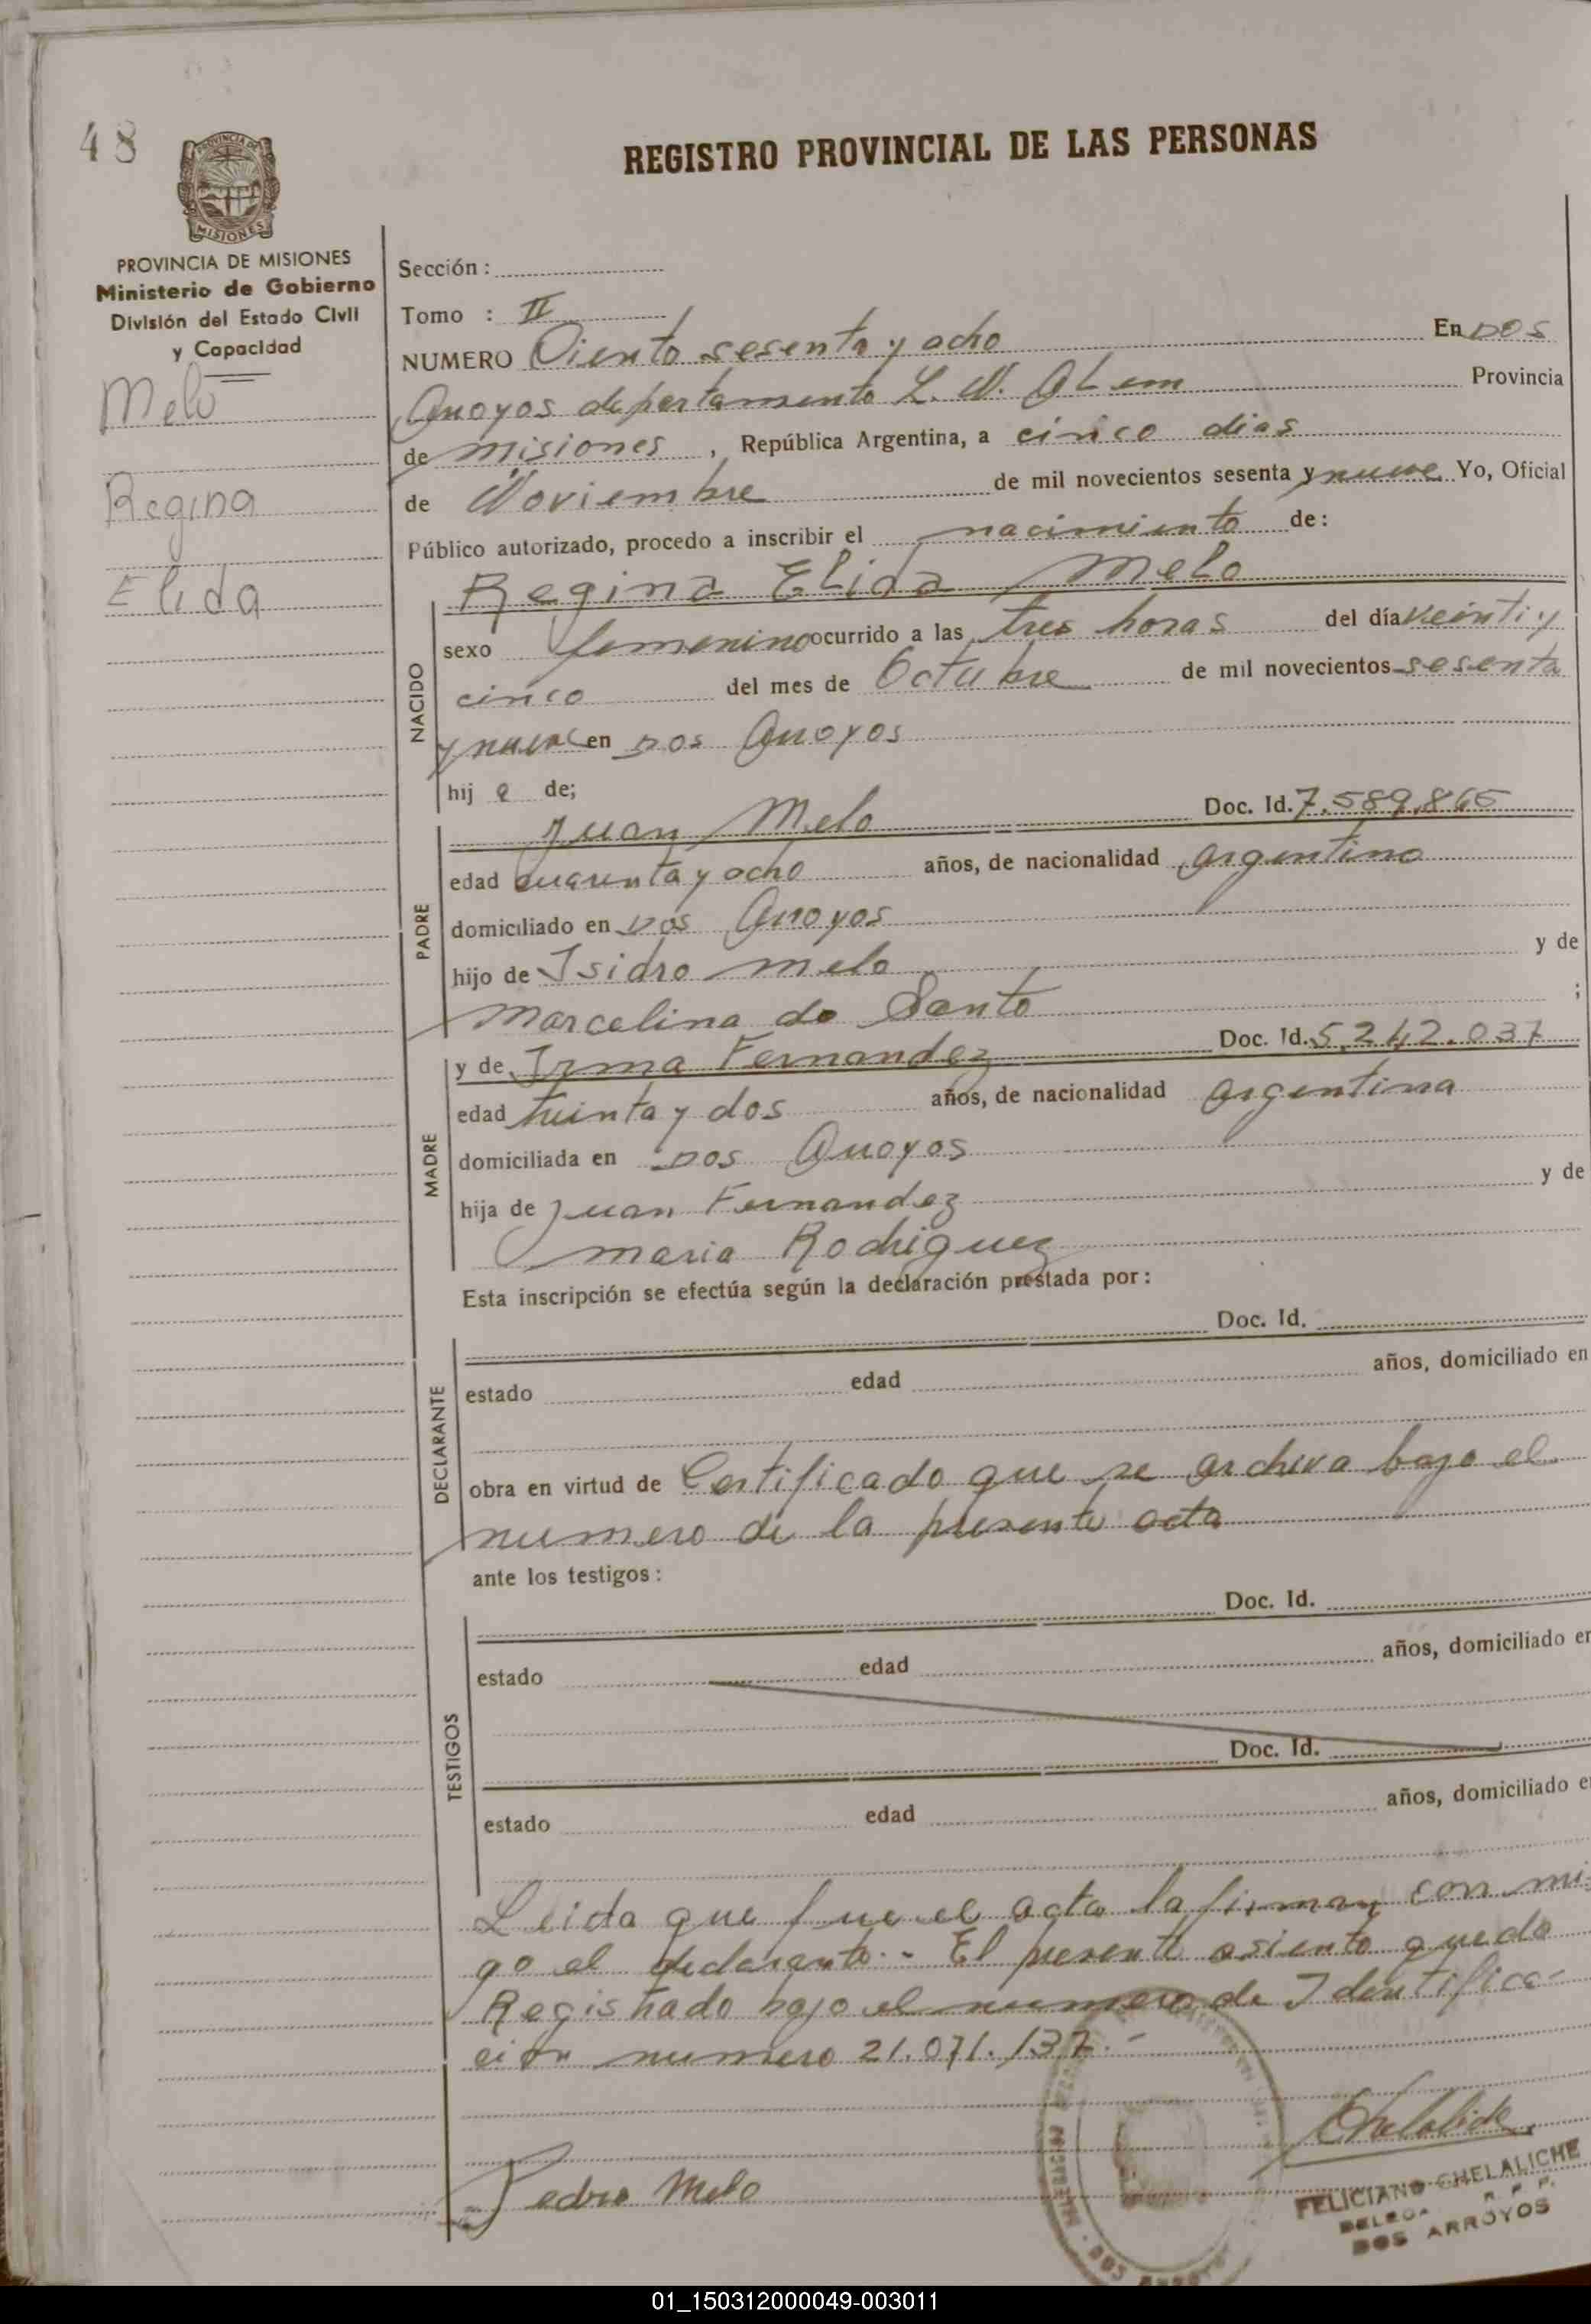 48
PROVINCIA DE
MISIONES
REGISTRO PROVINCIAL DE LAS PERSONAS
PROVINCIA DE MISIONES
Ministerio de Gobierno
División del Estado Civil
y Capacidad
Melo
Regina
Elida
Sección :
Tomo : II
NUMERO Ciento sesenta y ocho En Dos
Arroyos departamento L. N. Alem Provincia
de misiones , República Argentina, a cinco dias
de Noviembre de mil novecientos sesenta y nueve Yo, Oficial
Público autorizado, procedo a inscribir el nacimiento de :
Regina Elida Melo
NACIDO
sexo femenino ocurrido a las tres horas del día veinti y
cinco del mes de Octubre de mil novecientos sesenta
y nueve en Dos Arroyos
hij a de;
PADRE
Juan Melo Doc. Id. 7.589.865
edad cuarenta y ocho años, de nacionalidad argentino
domiciliado en Dos Arroyos
hijo de Isidro melo y de
Marcelina do Santo ;
MADRE
y de Irma Fernandez Doc. Id. 5.242.037
edad treinta y dos años, de nacionalidad argentina
domiciliada en Dos Arroyos
hija de Juan Fernandez y de
maria Rodriguez
Esta inscripción se efectúa según la declaración prestada por :
DECLARANTE
Doc. Id.
estado edad años, domiciliado en
obra en virtud de Certificado que se archiva bajo el
numero de la presente acta
ante los testigos :
TESTIGOS
Doc. Id.
estado edad años, domiciliado en
Doc. Id.
estado edad años, domiciliado e
Leida que fue el acta la firman conmi-
go el declarante.- El presente asiento queda
Registrado bajo el numero de Identifica-
cion numero 21.071.137.-
Pedro Melo
Chelaliche
FELICIANO CHELALICHE
R. P. P.
DOS ARROYOS
01_150312000049-003011